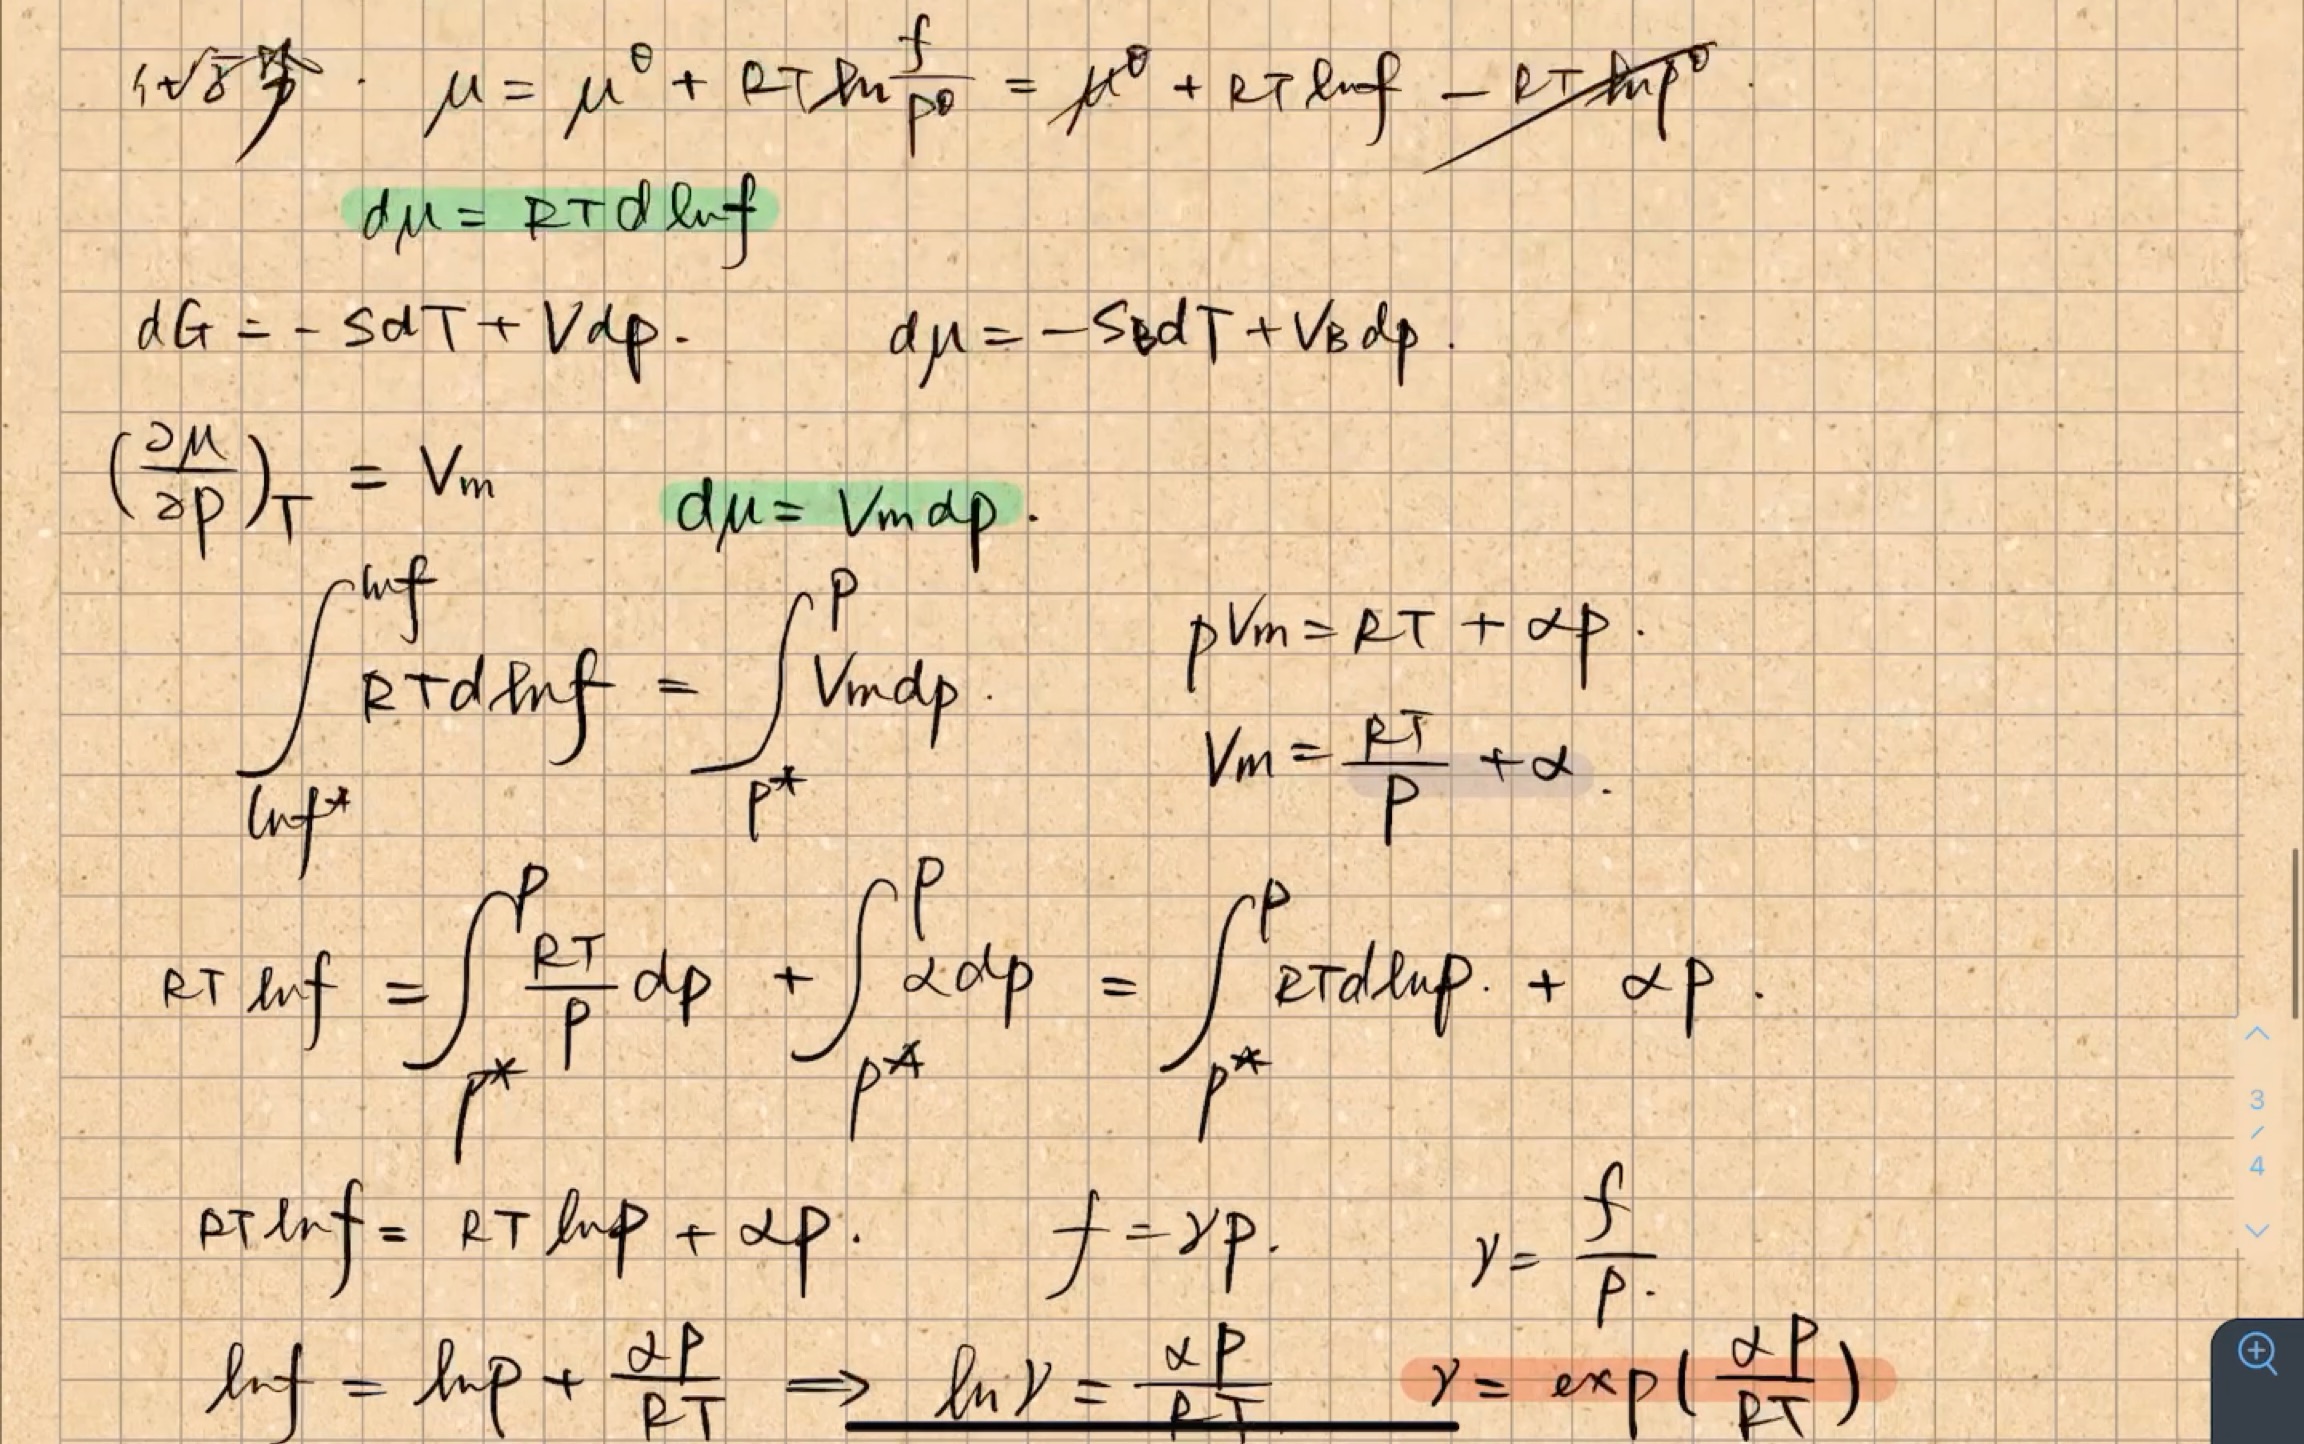 化学势. μ = μ^θ + RT ln f/p^θ = μ^θ + RT ln f - RT ln p^θ.
dμ = RT d ln f
dG = - SdT + Vdp. dμ = - S_B dT + V_B dp.
(∂μ/∂p)_T = Vm dμ = Vm dp.
∫_{ln f*}^{ln f} RT d ln f = ∫_{p*}^{p} Vm dp. pVm = RT + αp.
Vm = RT/p + α.
RT ln f = ∫_{p*}^{p} RT/p dp + ∫_{p*}^{p} α dp = ∫_{p*}^{p} RT d ln p. + αp.
RT ln f = RT ln p + αp. f = γp. γ = f/p.
ln f = ln p + αp/RT ⟹ ln γ = αp/RT γ = exp(αp/RT)
3
/
4